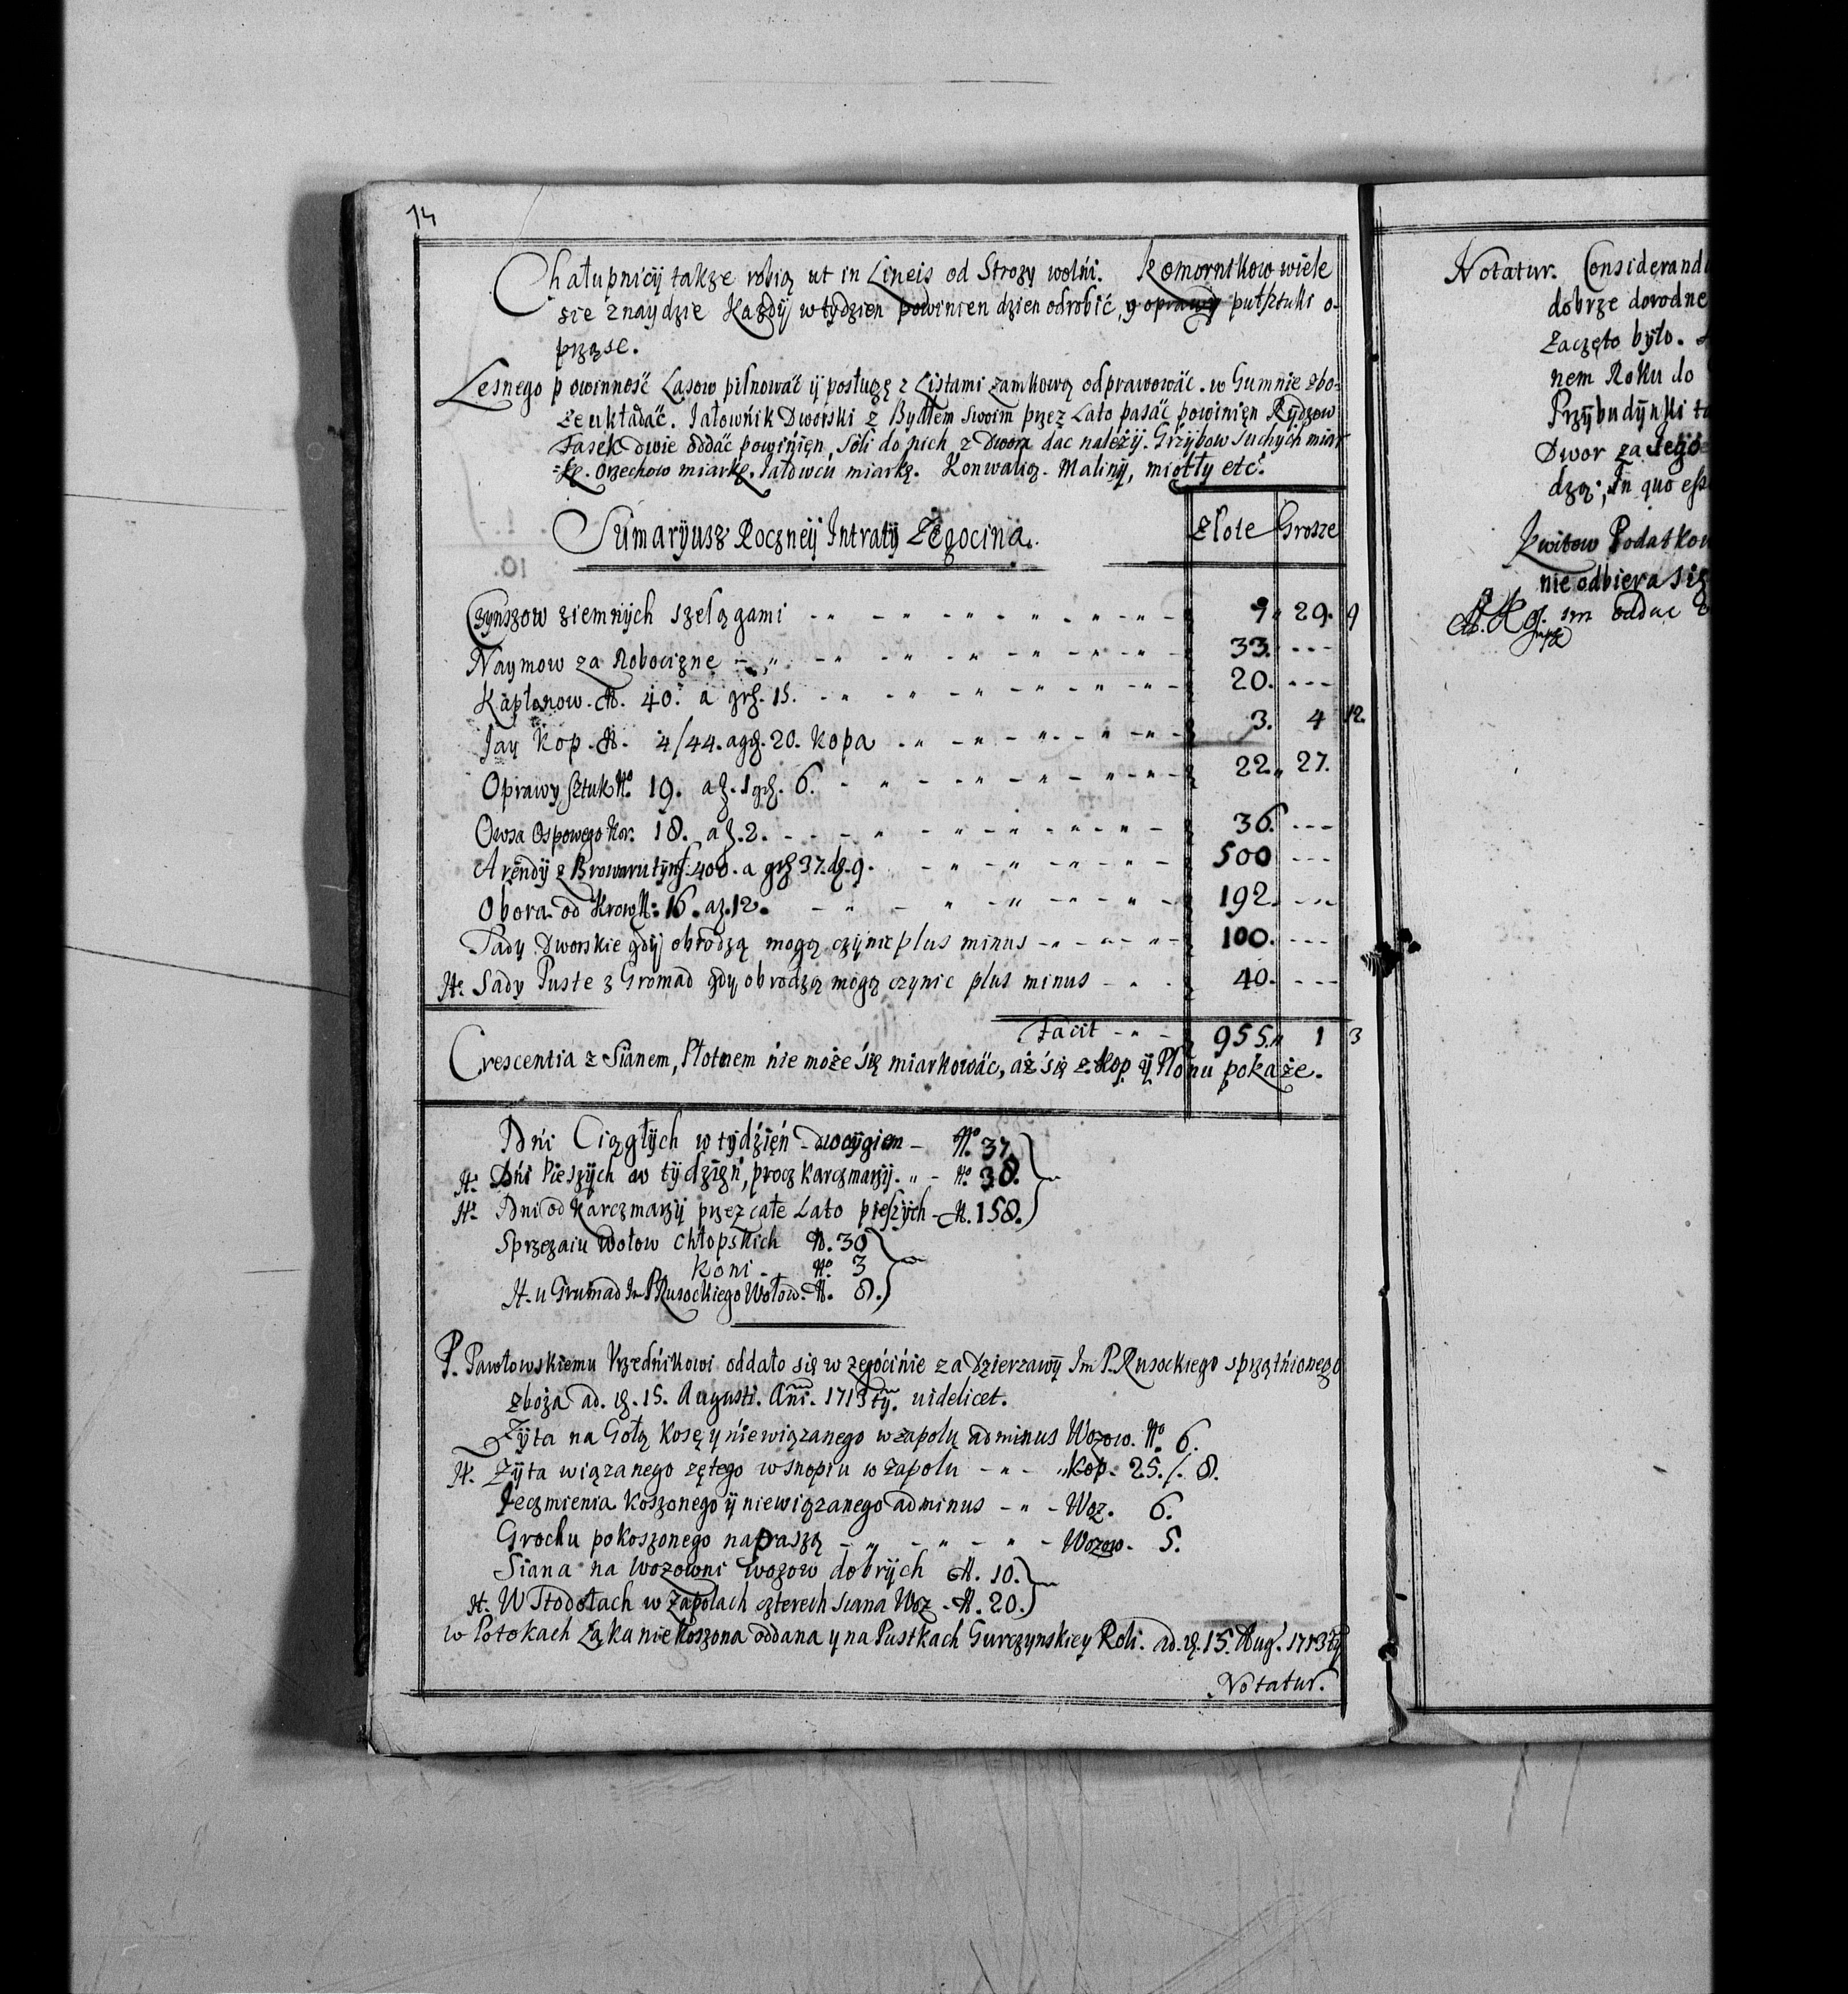 14
Chałupnicy takze robią ut in Lineis od Strozy wolni. Komornikow wiele
sie znaydzie Kazdy w tydzien powinien dzien odrobić, y oprawy pułsztuki o-
prząsc.
Lesnego powinność Lasow pilnować y posługę z Listami zamkową odprawować. w Gumnie zbo-
że układać. Jałownik Dworski z Bydłem swoim przez Lato pasać powinien Rydzow
Fasek dwie oddać powinien, Soli do nich z Dworu dac należy. Grzybow Suchych miar
=kę. Orzechow miarkę. Jałowcu miarką. Konwalią. Maliny, miotły etc.
Sumaryusz Roczney Intraty Zegocina.
Złote Grosze
Czynszow ziemnych szelągami 9. 29. 9
Naymow za Robociznę 33. ---
Kapłonow. N. 40. a grz. 15. 20. ---
Jay Kop. N. 4/44. a gz. 20. kopa 3. 4 12.
Oprawy sztuk No. 19. a z. 1 gz. 6. 22. 27.
Owsa Ospowego Kor. 18. a z. 2. 36. ---
Arendy z Browaru tynf. 400. a grz 37. dz. 9. 500 ---
Obora od Krow N: 16. az. 12. 192. ---
Sady Dworskie gdy obrodzą mogą czynic plus minus 100. ---
It. Sady Puste z Gromad gdy obrodzą mogą czynic plus minus 40. ---
Facit 955. 1 3
Crescentia z Sianem, Płotnem nie może się miarkować, aż się z Kop y Plonu pokaże.
Dni Ciągłych w tydzień dwoygiem No. 37.
It. Dni Pieszych w tydzień, procz karczmarzy. No. 38.
It. Dni od Karczmarzy przez całe Lato pieszych N. 158.
Sprzęzaiu Wołow chłopskich N. 30
Koni No. 3
It. u Grumad Im P Rusockiego Wołow. N. 8.
P. Pawłowskiemu Urzednikowi oddało się w zegocinie za Dzierzawy Im P. Rusockiego sprzątnionego
zboza ad. d. 15. Augusti. Ani. 1713 ty. uidelicet.
Zyta na Gołą Kosę y niewiązanego w zapolu ad minus Wozow. No. 6.
It. Zyta wiązanego zętego w snopiu w zapolu Kop. 25./. 8.
Jeczmienia koszonego y niewiązanego ad minus Woz. 6.
Grochu pokoszonego na paszą Wozow. 5.
Siana na Wozowni wozow dobrych N. 10.
It. W Stodołach w Zapolach czterech Siana Woz. N. 20.
w Potokach Łąka nie koszona oddana y na Pustkach Gurczynskiey Roli. ad. d. 15. Aug. 1713 ty
Notatur.
Notatur. Considerand
dobrze dorodne
zaczęto było.
nem Roku do
Przybudynki
Dwor za
dzą; In quo
Kwitow Podatkow
nie odbiera się
im oddac